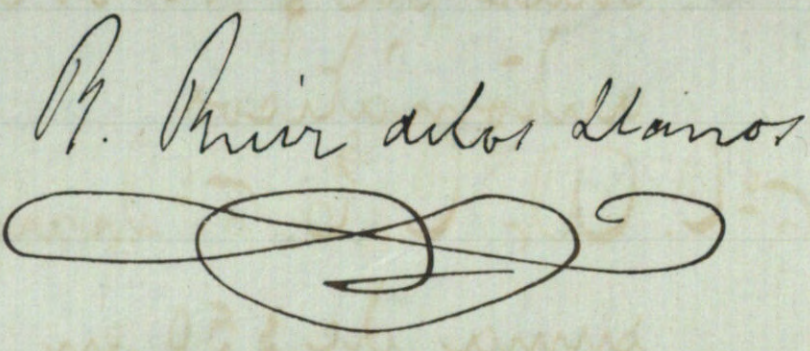 R. Ruiz de los Llanos